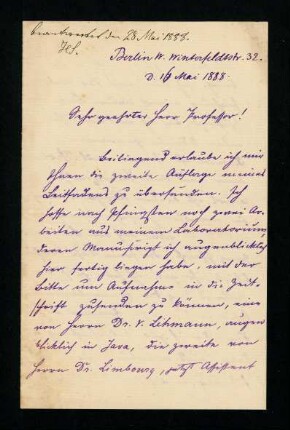 beantwortet den 28. Mai 1888.
Berlin W. Winterfeldtstr. 32.
d. 16 Mai 1888.
Sehr geehrter Herr Professor!
Beiliegend erlaube ich mir
Ihnen die zweite Auflage meines
Leitfadens zu übersenden. Ich
hoffe nach Pfingsten noch zwei Ar-
beiten aus meinem Laboratorium,
deren Manuscript ich augenblicklich
hier fertig liegen habe, mit der
Bitte um Aufnahme in die Zeit-
schrift zusenden zu können, eine
von Herrn Dr. v. Lehmann, augen
blicklich in Java, die zweite von
Herrn Dr. Limbourg, jetzt Assistent